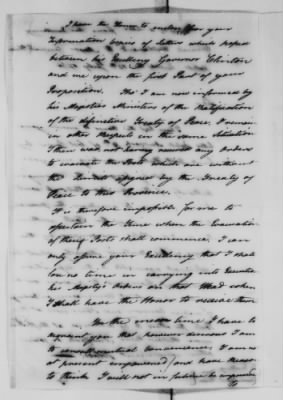 I have the Honor to enclose for your
Information Copies of letters which passed
between his Excellency Governor Clinton
and me upon the first Part of your
Proposition. Tho' I am now informed by
his Majesty's Ministers of the Ratification
of the definitive Treaty of Peace. I remain
in other Respects in the same Situation
I then was not having received any Orders
to evacuate the Posts which are without
the Limits assigned by the Treaty of
Peace to this Province.
It is therefore impossible for me to
ascertain the time when the Evacuation
of these Posts shall commence. I can
only assure your Excellency that I shall
lose no time in carrying into Execution
his Majesty's Orders on that Head when
I shall have the Honor to receive them
At the same time I have to
that however desirous I am
to
at present empowered (and have Reason
to think I will not in future be
to